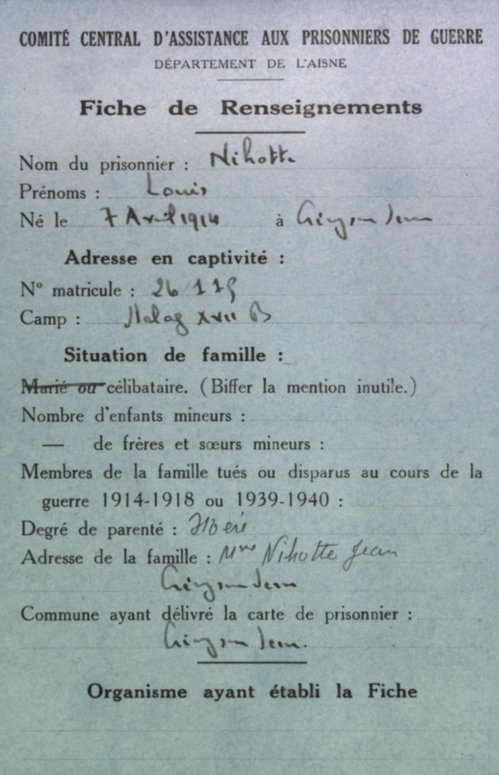 COMITÉ CENTRAL D'ASSISTANCE AUX PRISONNIERS DE GUERRE
DÉPARTEMENT DE L'AISNE
Fiche de Renseignements
Nom du prisonnier : Nihotte
Prénoms : Louis
Né le 7 Avril 1914 à
Adresse en captivité :
N° matricule :
Camp : Stalag XVII B
Situation de famille :
Marié ou célibataire. (Biffer la mention inutile.)
Nombre d'enfants mineurs :
— de frères et sœurs mineurs :
Membres de la famille tués ou disparus au cours de la
guerre 1914-1918 ou 1939-1940 :
Degré de parenté :
Adresse de la famille : Mme Nihotte Jean
Commune ayant délivré la carte de prisonnier :
Organisme ayant établi la Fiche